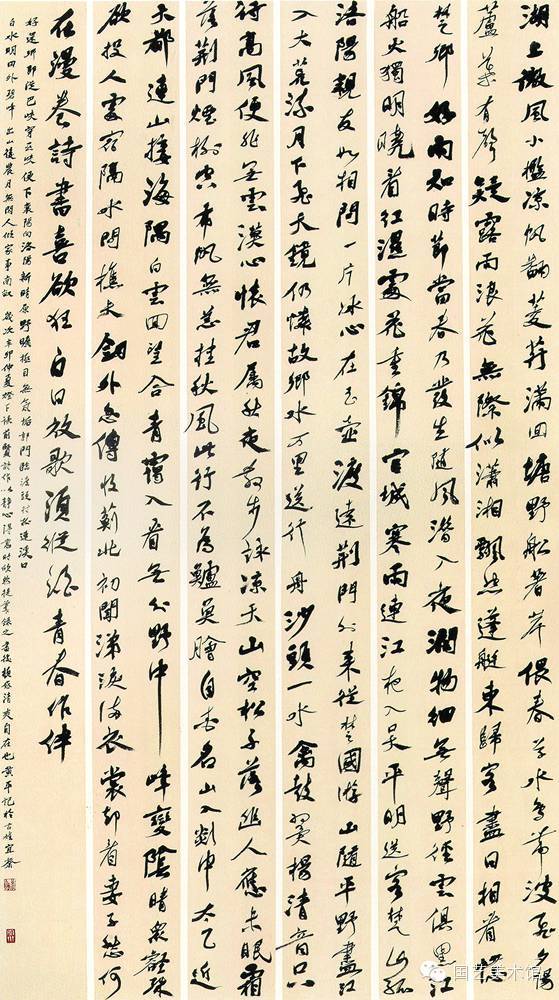 湖上微風小檻凉帆翻菱荇滿回塘野船著岸偎春草水鳥帶波飛夕陽
蘆葉有聲疑露雨浪花無際似瀟湘飄然蓬艇東歸客盡日相看憶
楚鄉好雨知時節當春乃發生隨風潛入夜潤物細無聲野徑雲俱黑江
船火獨明曉看紅濕處花重錦官城寒雨連江夜入吳平明送客楚山孤
洛陽親友如相問一片冰心在玉壺渡遠荊門外來從楚國游山隨平野盡江
入大荒流月下飛天鏡仍憐故鄉水万里送行舟沙頭一水禽鼓翼揚清音只
待高風便非無雲漢心懷君屬秋夜散步詠凉天山空松子落幽人應未眠霜
落荊門煙樹空布帆無恙挂秋風此行不為鱸魚膾自愛名山入剡中太乙近
天都連山接海隅白雲回望合青靄入看無分野中峰變陰晴眾壑殊
欲投人處宿隔水問樵夫劍外忽傳收薊北初聞涕淚滿衣裳卻看妻子愁何
在漫卷詩書喜欲狂白日放歌須縱酒青春作伴
好還鄉即從巴峽穿巫峽便下襄陽向洛陽新晴原野曠極目無氛垢郭門臨渡頭村樹連溪口
白水明田外碧峰出山後農月無閑人傾家事南畝歲次辛卯仲夏燈下讀前賢詩作以靜心得時欣然提筆錄之書後頓感清爽自在也黃平記於宜齋
国艺美术馆